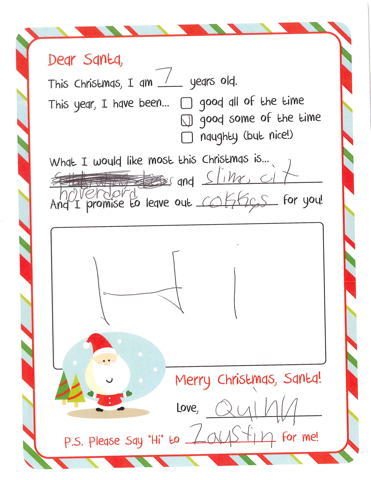 Dear Santa,
This Christmas, I am 7 years old.
This year, I have been... good all of the time
good some of the time
naughty (but nice!)
What I would like most this Christmas is...
and slime cit
hoverdord
And I promise to leave out cokkies for you!
Hi
Merry Christmas, Santa!
Love, Quinn
P.S. Please Say "Hi" to Zaustin for me!